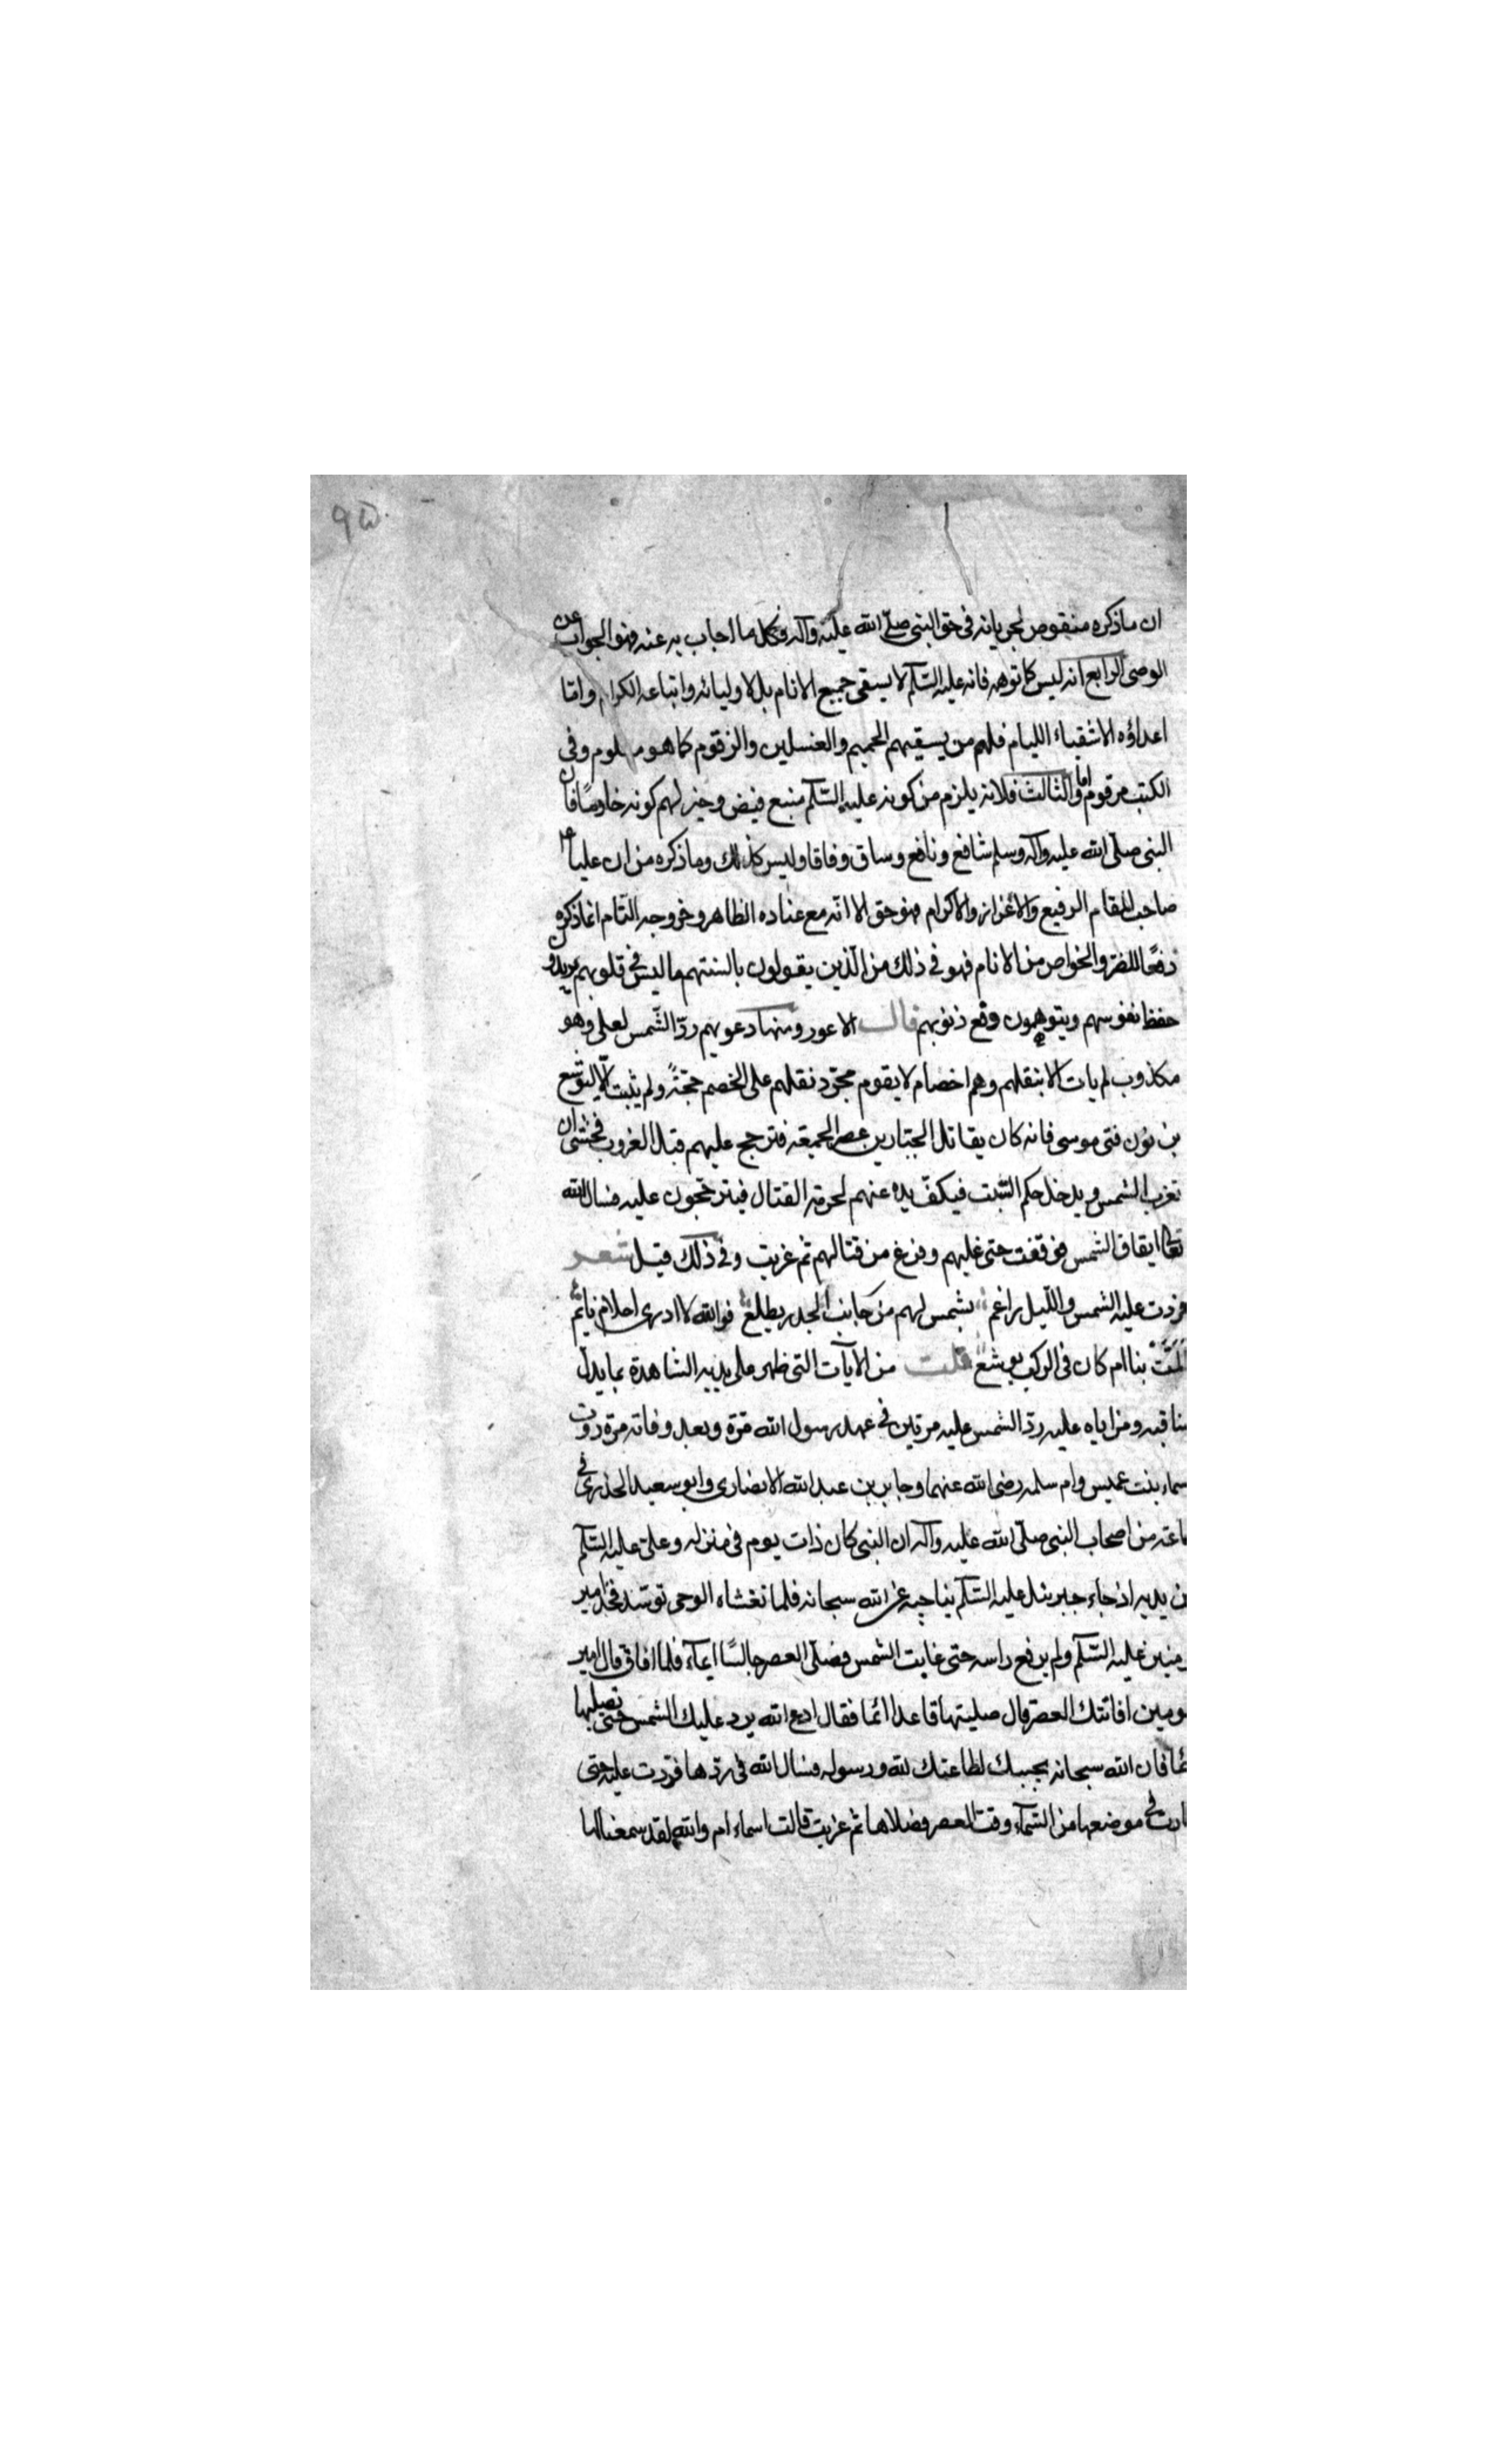 ٩٥
ان ماذكره منقوض لجريانه فى حق النبى صلّى الله عليه وآله فكل ما اجاب به عنه فهو الجواب عن
الوصى الرابع انه ليس كما توهمه فانه عليه السّلم لا يسقى جميع الانام بل لاوليائه واتباعه الكرام وامّا
اعداؤه الاشقياء الليام فلهم من يسقيهم الحميم والغسلين والزقوم كما هو معلوم وفى
الكتب مرقوم واما الثالث فلانه يلزم من كونه عليه السّلم منبع فيض وخير لهم كونه خادمًا فان
النبى صلّى الله عليه وآله وسلم شافع ونافع وساق وفاقا وليس كذلك وما ذكره من ان عليا
صاحب المقام الرفيع والاعزاز والاكرام فهو حق الا انّه مع عناده الظاهر وخروجه التام انما ذكره
دفعًا للضرّ والخواص من الانام فهو فى ذلك من الّذين يقولون بالسنتهم ما ليس فى قلوبهم يريدون
حفظ نفوسهم ويتوهمون وقع ذنوبهم قال الاعور ومنها دعويهم ردّ الشّمس لعلى وهو
مكذوب لم يات الا بنقلهم وهم اخصام لا يقوم مجرّد نقلهم على الخصم حجّةً ولم يثبت الّا ليوشع
بن نون فتى موسى فانه كان يقاتل الجبّارين عصر الجمعة فترجح عليهم قبل الغروب فخشى ان
تغرب الشمس ويدخل حكم السّبت فيكفّ يده عنهم لحرمة القتال فيترجّحون عليه فسال الله
تعالى ايقاف الشمس فوقفت حتى غلبهم وفرغ من قتالهم ثم غربت وفى ذلك قيل شعر
فردت عليه الشمس والليل راغم بشمس لهم من جانب الخدر يطلع فوالله لا ادرى احلام نايم
المّت بنا ام كان فى الركب يوشع قلت من الآيات التى ظهر على يديه الشاهدة بما يدل
مناقبه ومزاياه عليه ردّ الشمس عليه مرتين فى عهد رسول الله مرّة وبعد وفاته مرّة روت
سماء بنت عميس وام سلمه رضى الله عنهما وجابر بن عبد الله الانصارى وابو سعيد الخدرى فى
ماعة من اصحاب النبى صلّى الله عليه وآله ان النبى كان ذات يوم فى منزله وعلى عليه السّلم
ن يديه اذ جاء جبرئيل عليه السّلم يناجيه عن الله سبحانه فلما تغشاه الوحى توسّد فخذ امير
ومنين عليه السّلم ولم يرفع راسه حتى غابت الشمس فصلّى العصر جالسًا ايماء فلما افاق قال امير
ومنين افاتتك العصر قال صليتها قاعدا ائما فقال ادع الله يرد عليك الشمس حتى تصليها
ئما فان الله سبحانه يجيبك لطاعتك لله ورسوله فسال الله فى ردّها فردّت عليه حتى
ارت فى موضعها من السّماء وقت العصر فصلاها ثم غربت قالت اسماء ام والله لقد سمعنا لها